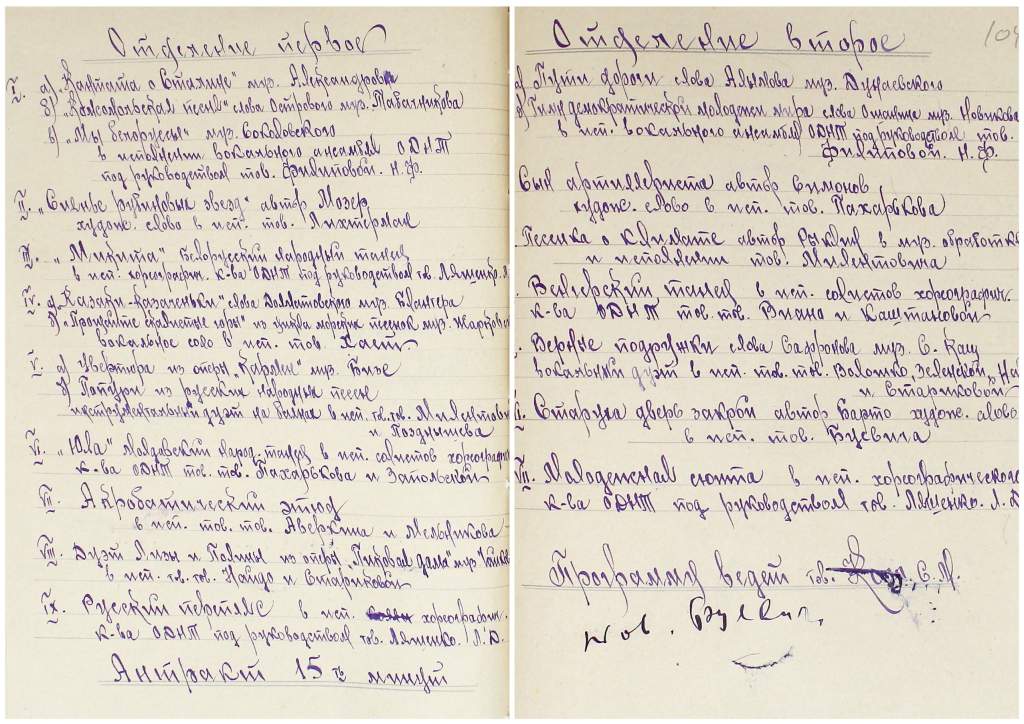 Отделение первое
I. а) „Кантата о Сталине" муз. Александрова
б) „Комсомольская песня" слова Острового муз. Табачникова
в) „Мы белорусы" муз. Соколовского
в исполнении вокального ансамбля ОДНТ
под руководством тов. Филиповой. Н.Ф.
II. „Сиянье рубиновых звезд" автор Мозер
худож. слово в исп. тов. Лихтерман
III. „Микита" Белорусский народный танец
в исп. хореографич. к-ва ОДНТ под руководством тов. Ляшенко. Л.
IV. а) „Казаки-казаченьки" слова Долматовского муз. Блантера
б) „Прощайте скалистые горы" из цикла морских песен муз. Жарковс
вокальное соло в исп. тов. Хаст.
V. а) Увертюра из оперы „Кармен" муз. Бизе
б) Попурри из русских народных песен
инструментальный дуэт на баянах в исп. тов. тов. Милентови
и Позднышева
VI. „Юла" Молдавский народ. танец в исп. солистов хореографич
к-ва ОДНТ тов. тов. Пахарькова и Запольской
VII. Акробатический этюд
в исп. тов. тов. Аверкина и Мельникова
VIII. Дуэт Лизы и Полины из оперы „Пиковая дама" муз.
в исп. тов. тов. Найдо и Стариковой
IX. Русский перепляс в исп. хореографич.
к-ва ОДНТ под руководством тов. Ляшенко. Л.Д.
Антракт 15 ть минут
Отделение второе
104
а) Пути дороги слова Алымова муз. Дунаевского
б) Гимн демократической молодежи мира слова Ошанина муз. Новикова
в исп. вокального ансамбля ОДНТ под руководством тов.
Филиповой. Н.Ф.
Сын артиллериста автор Симонов
худож. слово в исп. тов. Пахарькова
Песенка о климате автор Рыклин в муз. обработке
и исполнении тов. Милентовича
Венгерский танец в исп. солистов хореографич.
к-ва ОДНТ тов. тов. Виано и Каштановой
Верные подружки слова Сафронова муз. С. Кац
вокальный дуэт в исп. тов. тов. Волошко, Зеленской, Най
и Стариковой
Старуха дверь закрой автор Барто худож. слово
в исп. тов. Буевича
VII. Молодежная сюита в исп. хореографического
к-ва ОДНТ под руководством тов. Ляшенко. Л.Д
Программу ведет тов. С.М.
тов. Буевич